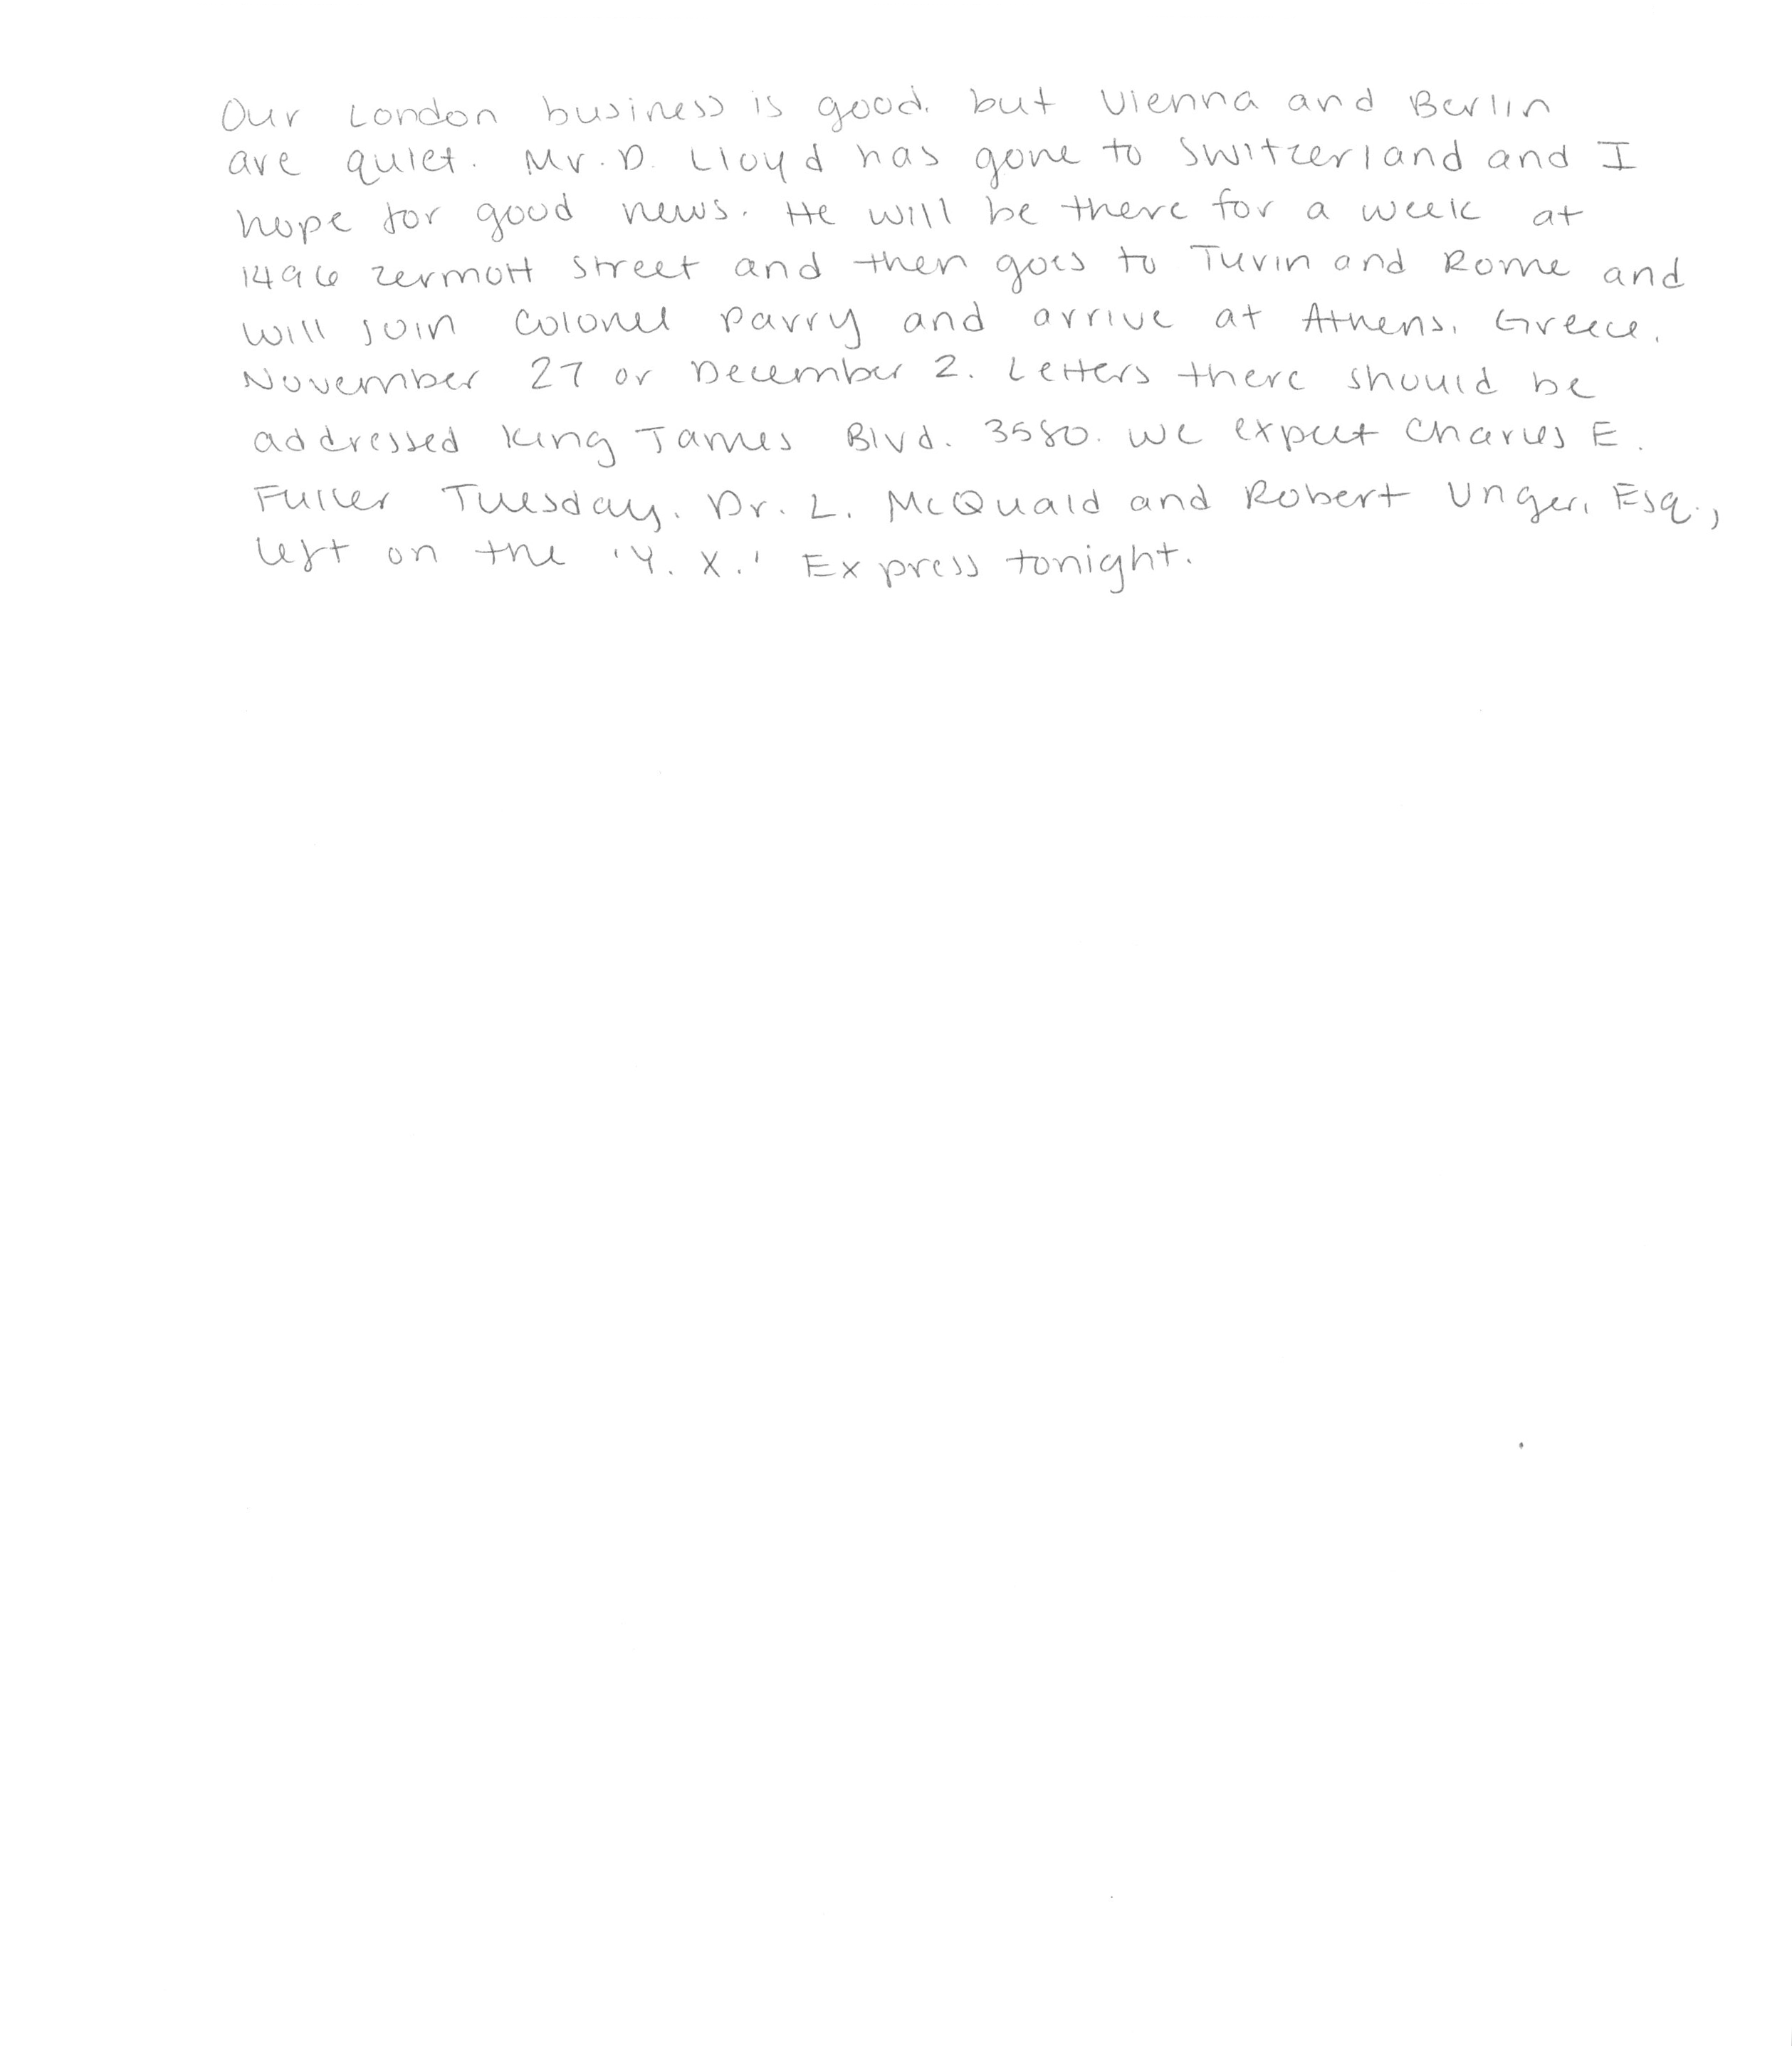 Our London business is good, but Vienna and Berlin
are quiet. Mr. D. Lloyd has gone to Switzerland and I
hope for good news. He will be there for a week at
1496 Zermott Street and then goes to Turin and Rome and
will join Colonel Parry and arrive at Athens, Greece,
November 27 or December 2. Letters there should be
addressed King James Blvd. 3580. We expect Charles E.
Fuller Tuesday. Dr. L. McQuaid and Robert Unger, Esq.,
left on the 'Y. X.' Express tonight.